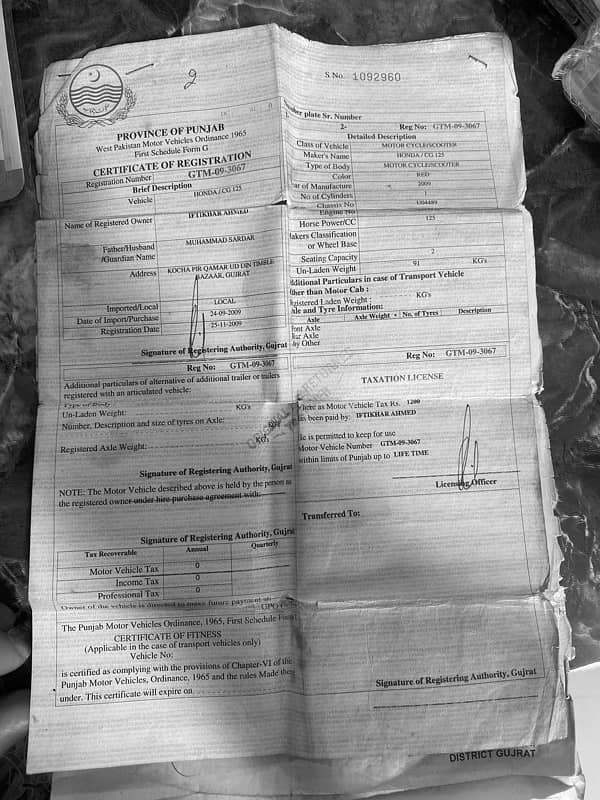 2
S No. 1092960
PROVINCE OF PUNJAB
West Pakistan Motor Vehicles Ordinance 1965
First Schedule Form G
CERTIFICATE OF REGISTRATION
Registration Number GTM-09-3067
Brief Description
Vehicle HONDA / CG 125
Name of Registered Owner IFTIKHAR AHMED
Father/Husband MUHAMMAD SARDAR
/Guardian Name
Address KOCHA PIR QAMAR UD DIN TIMBLE
BAZAAR, GUJRAT
Imported/Local LOCAL
Date of Import/Purchase 24-09-2009
Registration Date 25-11-2009
Signature of Registering Authority, Gujrat
Reg No: GTM-09-3067
Additional particulars of alternative of additional trailer or trailers
registered with an articulated vehicle:
Type of Body :
Un-Laden Weight: KG's
Number, Description and size of tyres on Axle: KG's
Registered Axle Weight: KG's
Signature of Registering Authority, Gujrat
NOTE: The Motor Vehicle described above is held by the person as
the registered owner under hire purchase agreement with:
Signature of Registering Authority, Gujrat
Tax Recoverable Annual Quarterly
Motor Vehicle Tax 0
Income Tax 0
Professional Tax 0
Owner of the vehicle is directed to make future payment at:
GPO
The Punjab Motor Vehicles Ordinance, 1965, First Schedule Form
CERTIFICATE OF FITNESS
(Applicable in the case of transport vehicles only)
Vehicle No:
is certified as complying with the provisions of Chapter-VI of the
Punjab Motor Vehicles, Ordinance, 1965 and the rules Made there
under. This certificate will expire on
plate Sr. Number
2- Reg No: GTM-09-3067
Detailed Description
Class of Vehicle MOTOR CYCLE/SCOOTER
Maker's Name HONDA / CG 125
Type of Body MOTOR CYCLE/SCOOTER
Color RED
ear of Manufacture 2009
No of Cylinders 1
Chassis No U04489
Engine No
Horse Power/CC 125
akers Classification
or Wheel Base
Seating Capacity 2
Un-Laden Weight 91 KG's
dditional Particulars in case of Transport Vehicle
ther than Motor Cab :
egistered Laden Weight : KG's
xle and Tyre Information:
Axle Axle Weight No. of Tyres Description
ront Axle
ar Axle
ny Other
Reg No: GTM-09-3067
TAXATION LICENSE
here as Motor Vehicle Tax Rs. 1200
as been paid by: IFTIKHAR AHMED
He is permitted to keep for use
Motor Vehicle Number GTM-09-3067
within limits of Punjab up to LIFE TIME
Licensing Officer
Transferred To:
Signature of Registering Authority, Gujrat
DISTRICT GUJRAT